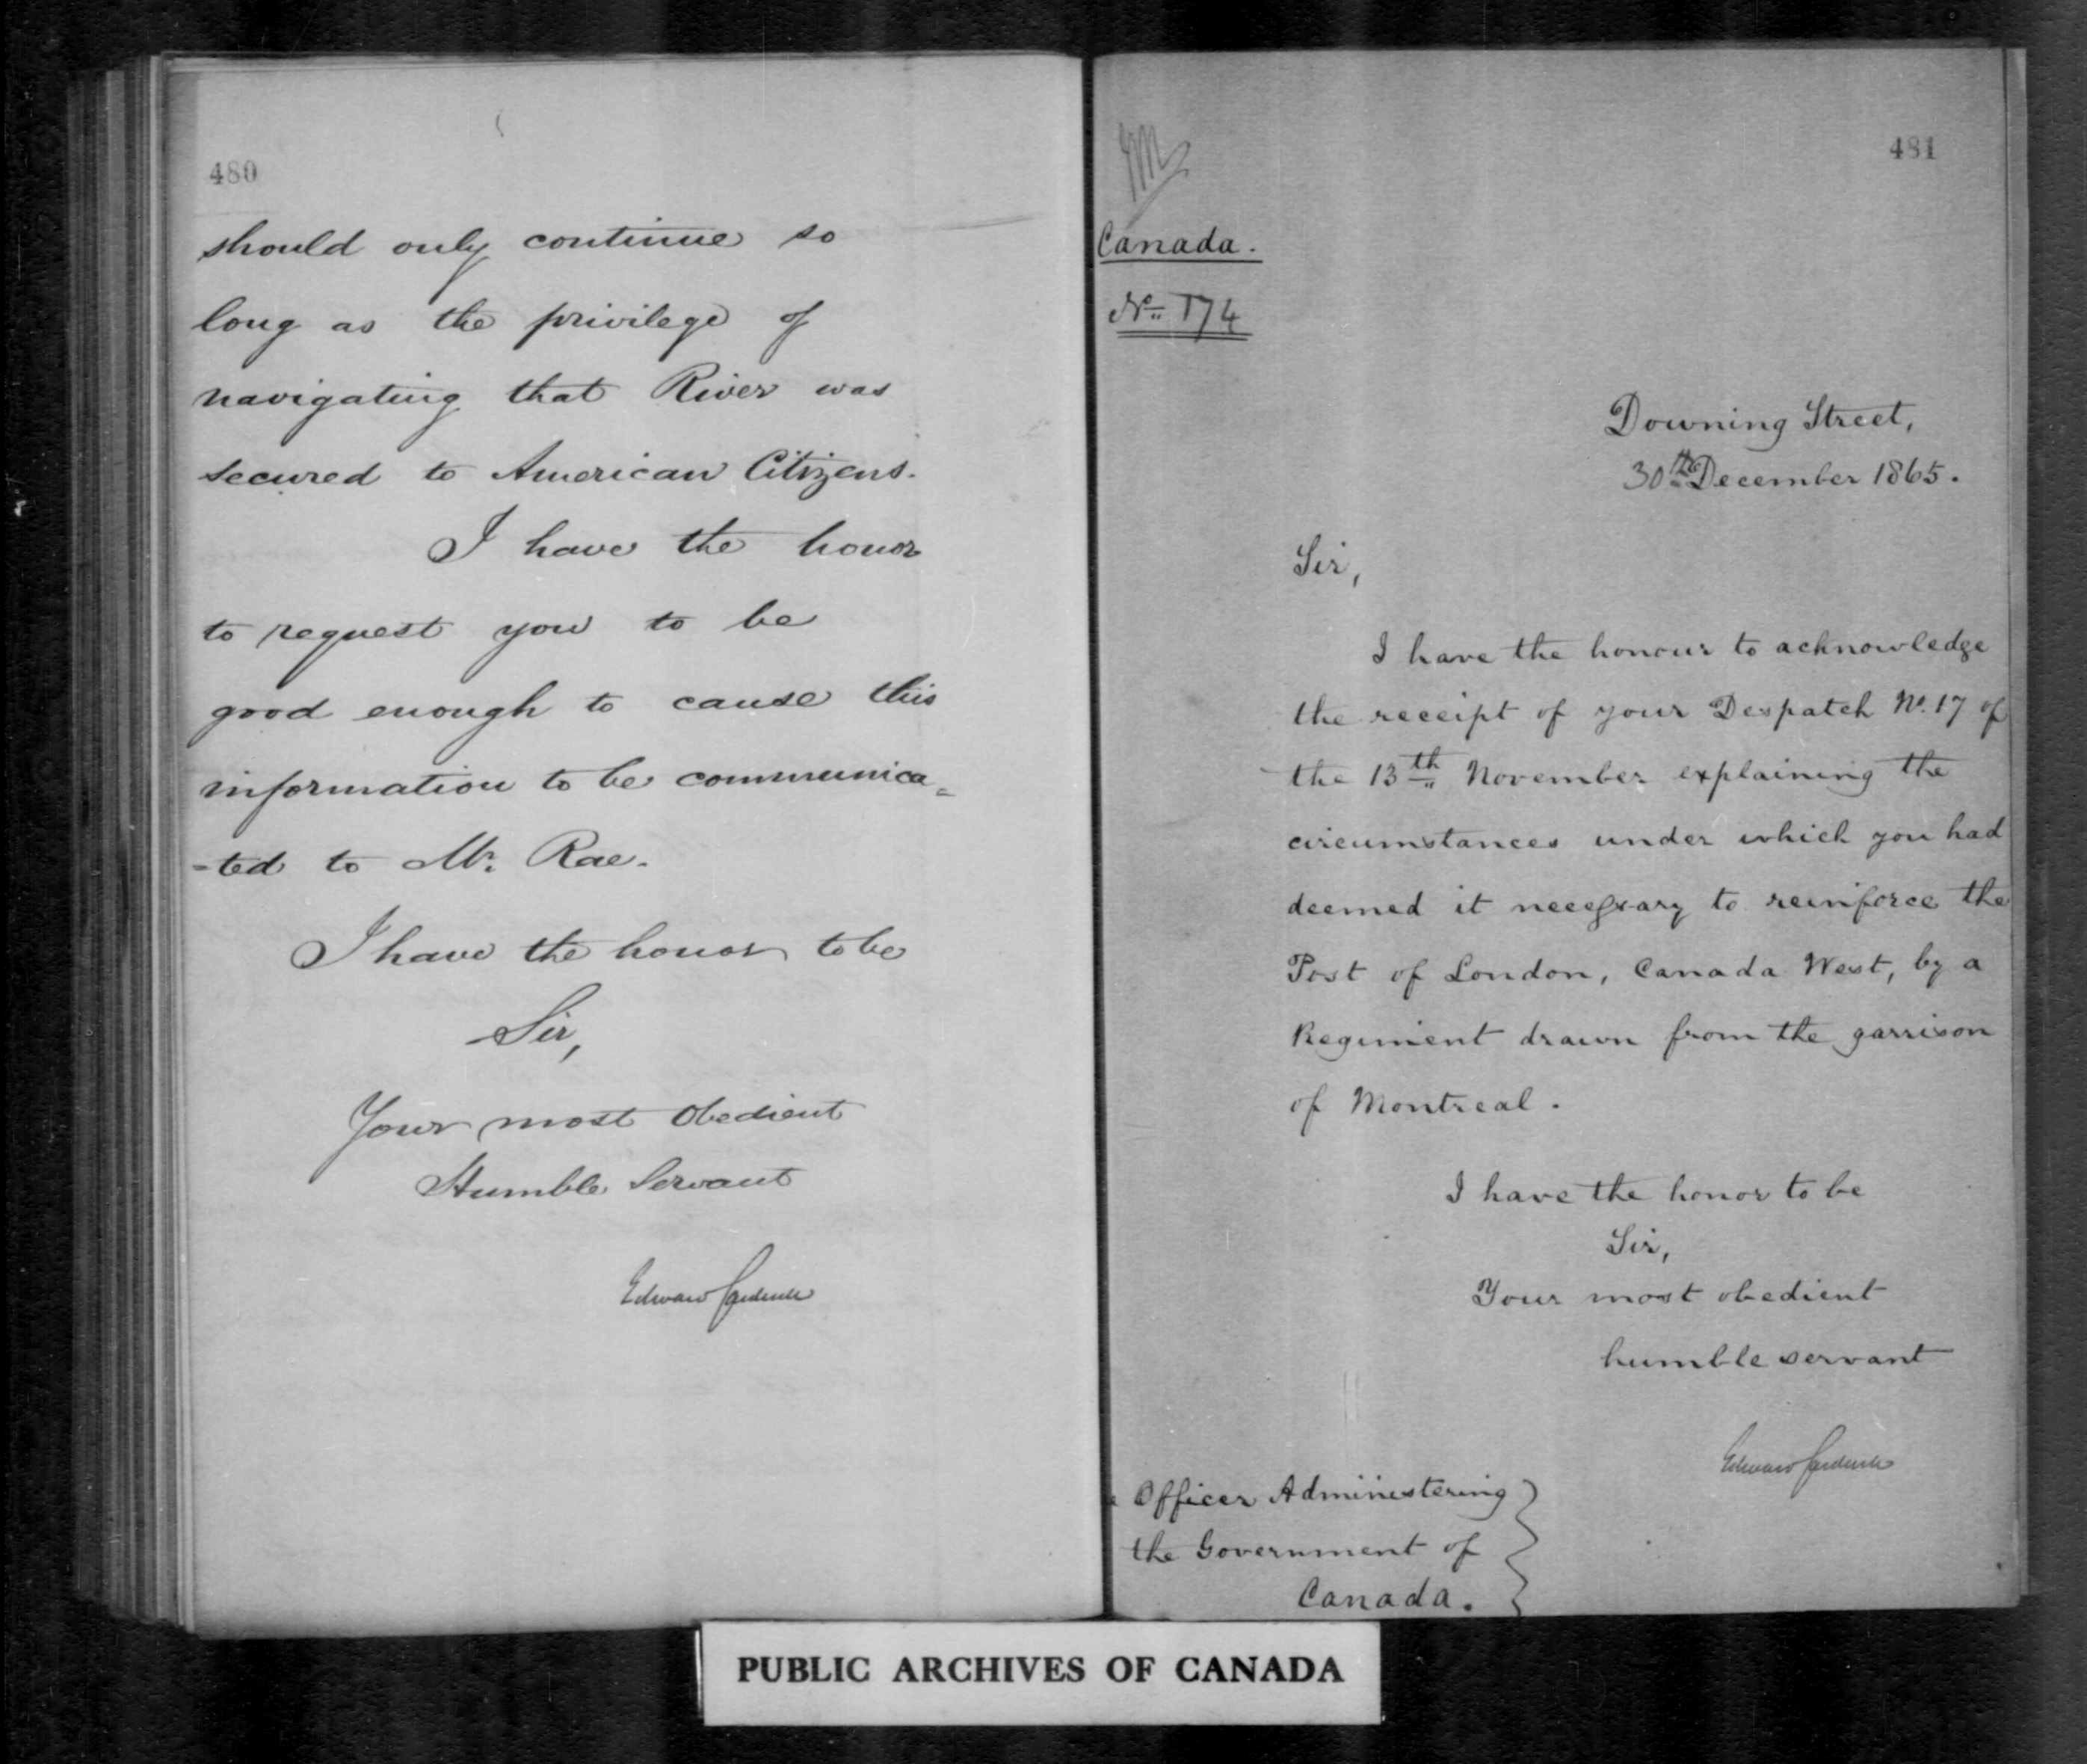 480
should only continue so
long as the privilege of
navigating that River was
secured to American Citizens.
I have the honor
to request you to be
good enough to cause this
information to be communica=
=ted to Mr. Rae.
I have the honor to be
Sir,
Your most Obedient
Humble Servant
Edward Cardwell
481
Canada.
No. 174
Downing Street,
30th December 1865.
Sir,
I have the honour to acknowledge
the receipt of your Despatch No. 17 of
the 13th November explaining the
circumstances under which you had
deemed it necessary to reinforce the
Post of London, Canada West, by a
Regiment drawn from the garrison
of Montreal.
I have the honor to be
Sir,
Your most obedient
humble servant
Edward Cardwell
Officer Administering
the Government of
Canada.
PUBLIC ARCHIVES OF CANADA